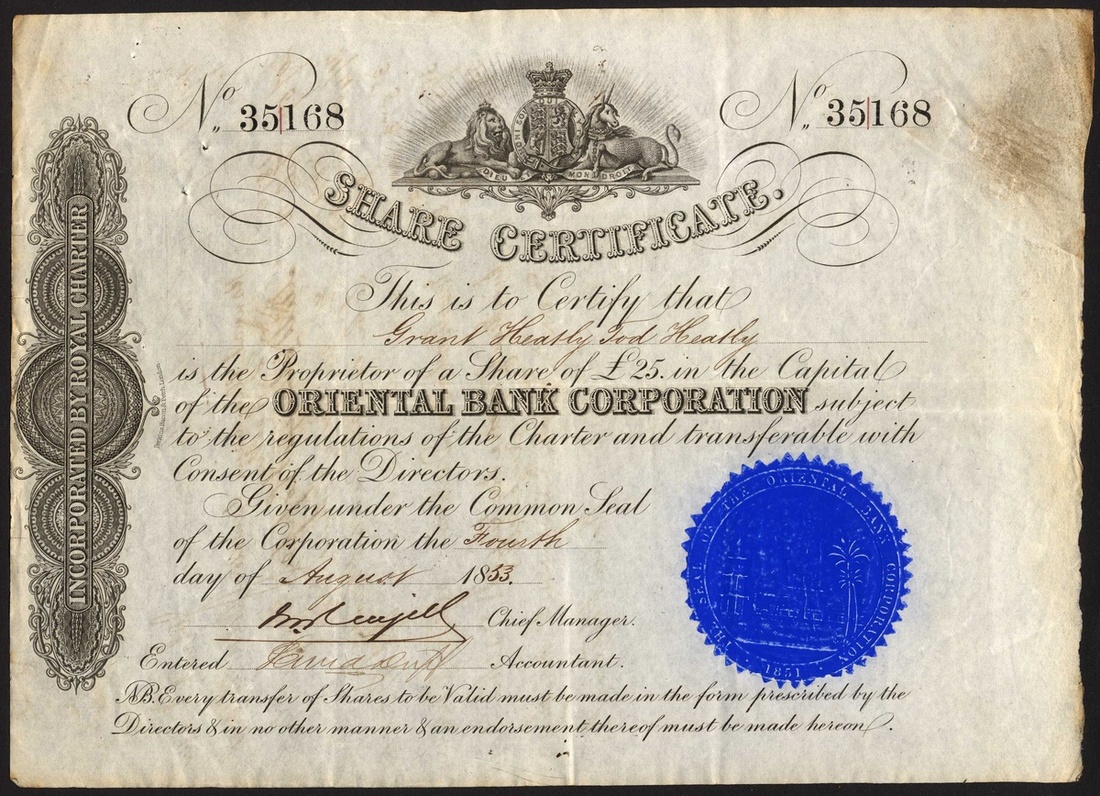 No. 35168
No. 35168
DIEU ET MON DROIT
SHARE CERTIFICATE.
INCORPORATED BY ROYAL CHARTER
This is to Certify that
Grant Heatly Tod Heatly
is the Proprietor of a Share of £25. in the Capital
of the ORIENTAL BANK CORPORATION subject
to the regulations of the Charter and transferable with
Consent of the Directors.
Given under the Common Seal
of the Corporation the Fourth
day of August 1853.
Chief Manager.
Entered Accountant.
THE SEAL OF THE ORIENTAL BANK CORPORATION
1851
NB. Every transfer of Shares to be Valid must be made in the form prescribed by the
Directors & in no other manner & an endorsement thereof must be made hereon.